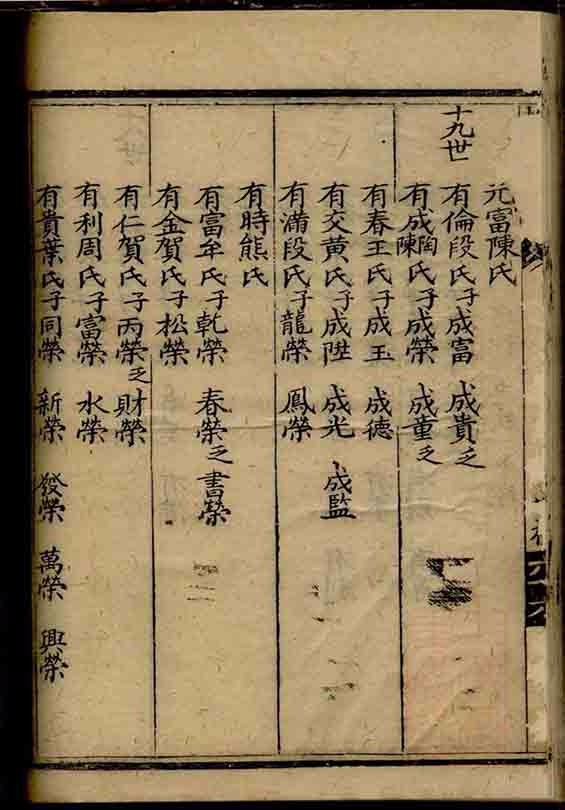 元富陳氏
十九世
有倫段氏子成富 成貴乏
有成陶陳氏子成榮 成董乏
有春王氏子成玉 成德
有交黃氏子成陞 成光 成監
有滿段氏子龍榮 鳳榮
有時熊氏
有富牟氏子乾榮 春榮乏書榮
有金賀氏子松榮
有仁賀氏子丙榮乏財榮
有利周氏子富榮 水榮
有貴葉氏子同榮 新榮 發榮 萬榮 興榮